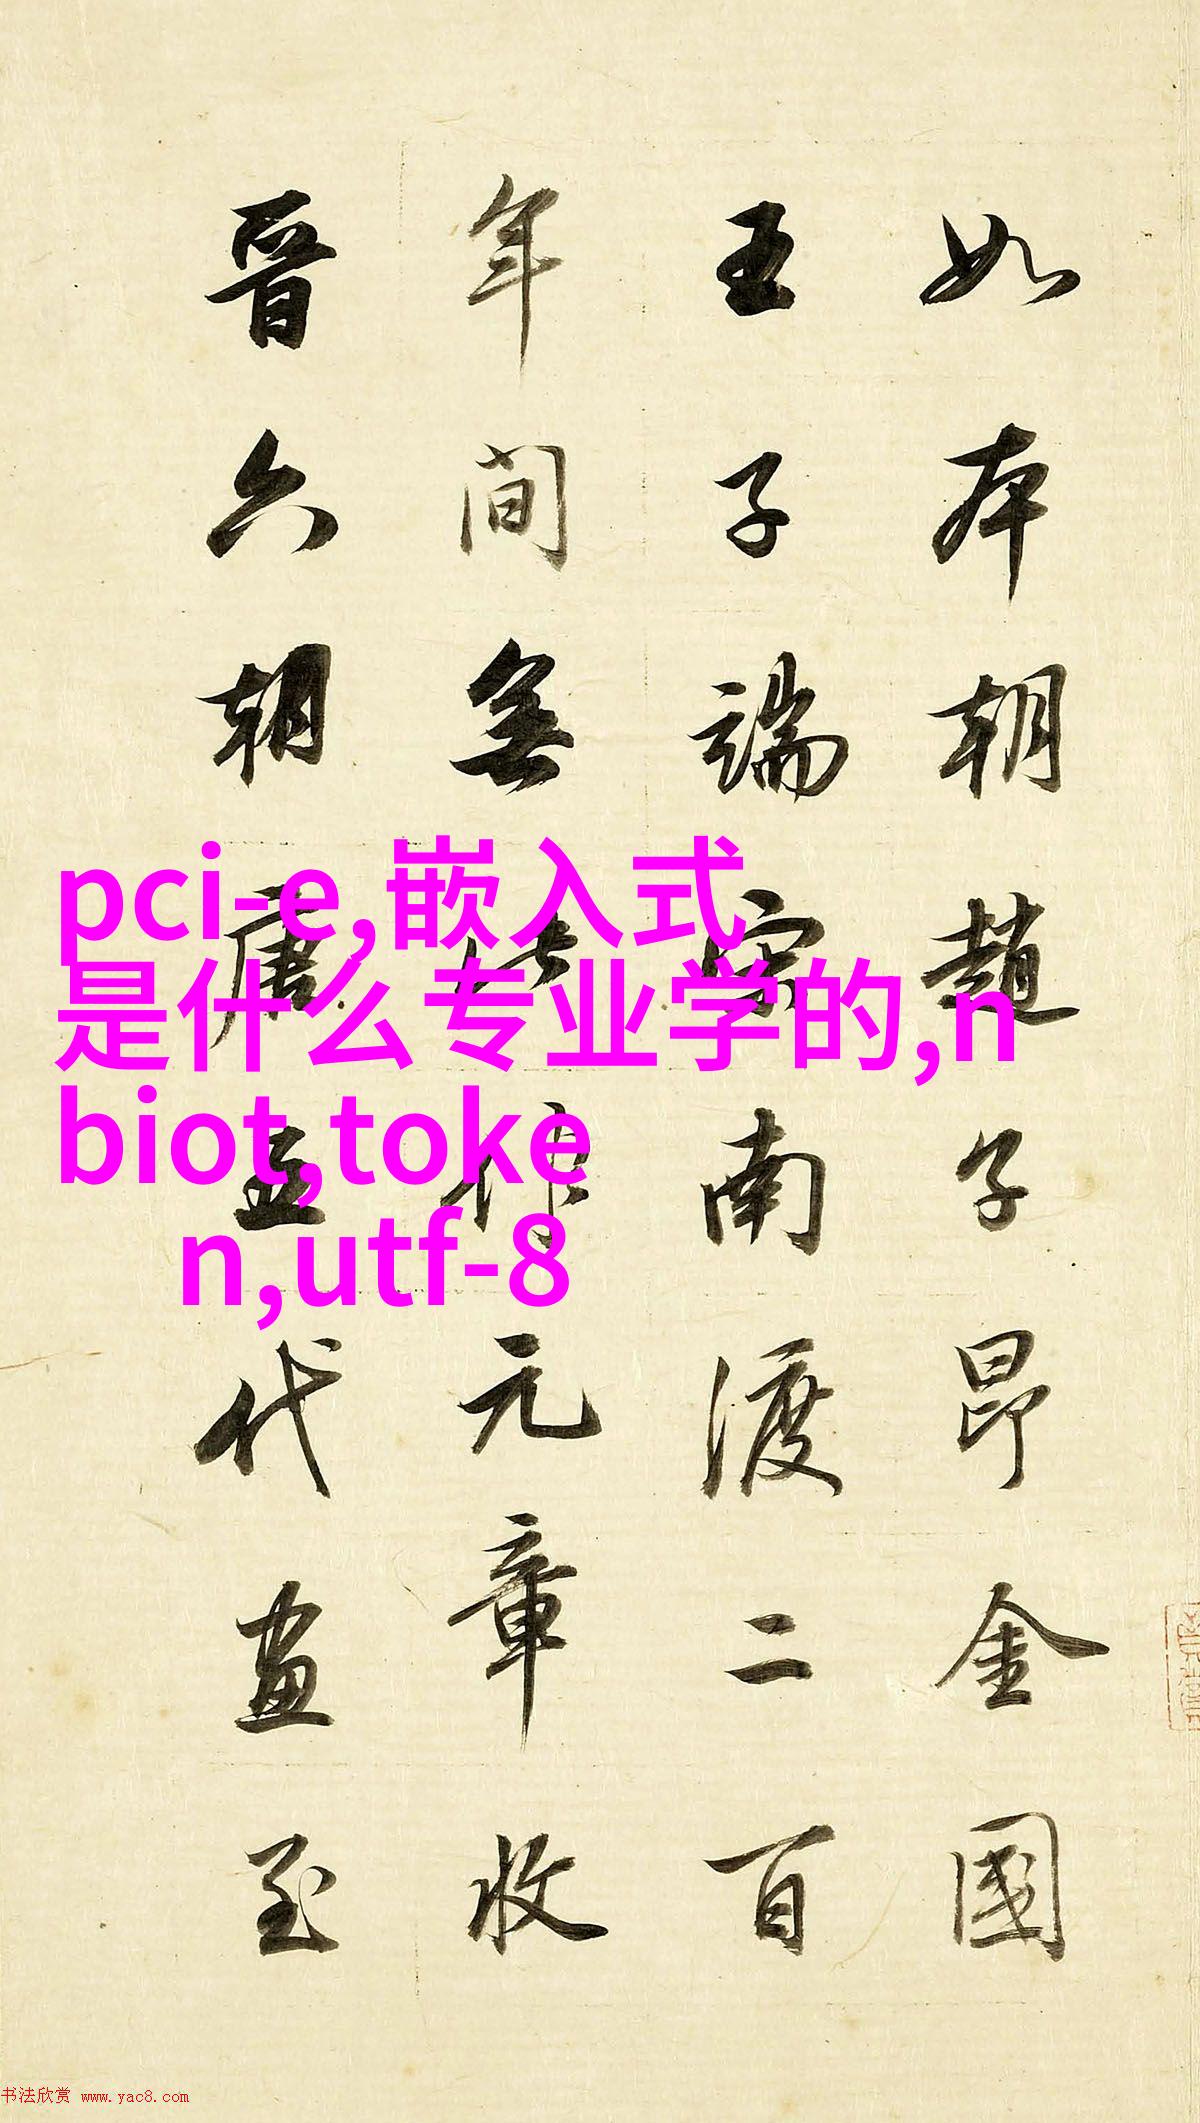 如本朝趙子昂金國
王子端宋南渡二百
年間無
元章收
晉六朝唐五代畫至
pci-e,嵌入式
是什么专业学的,n
biot,toke
n,utf-8
书法欣赏 www.yac8.com